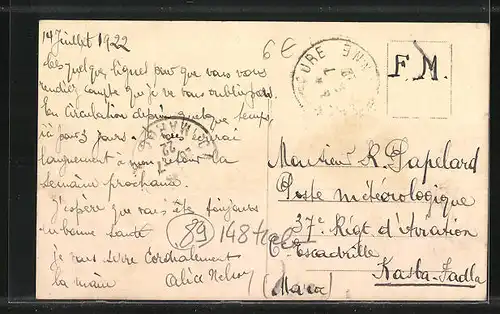 14 Juillet 1922
Ces quelques lignes pour que vous vous
rendiez compte que je ne vous oublie pas.
En circulation depuis quelque temps
ici pour 3 jours. vous
longuement à mon retour la
semaine prochaine.
J'espère que vous ête toujours
en bonne santé
je vous serre cordialement
la main
6 €
F.M.
Monsieur R. Papelard
Poste météorologique
37e Régt. d'Aviation
Escadrille
Kasba-Tadla
(Maroc)
89
148